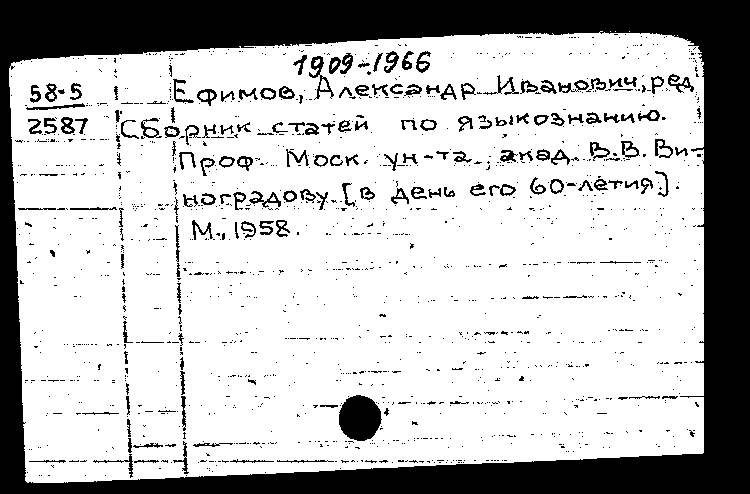 1909-1966
58-5 Ефимов, Александр Иванович, ред
2587 Сборник статей по языкознанию.
Проф. Моск. ун-та, акад. В.В. Ви-
ноградову. [в день его 60-летия].
М., 1958.